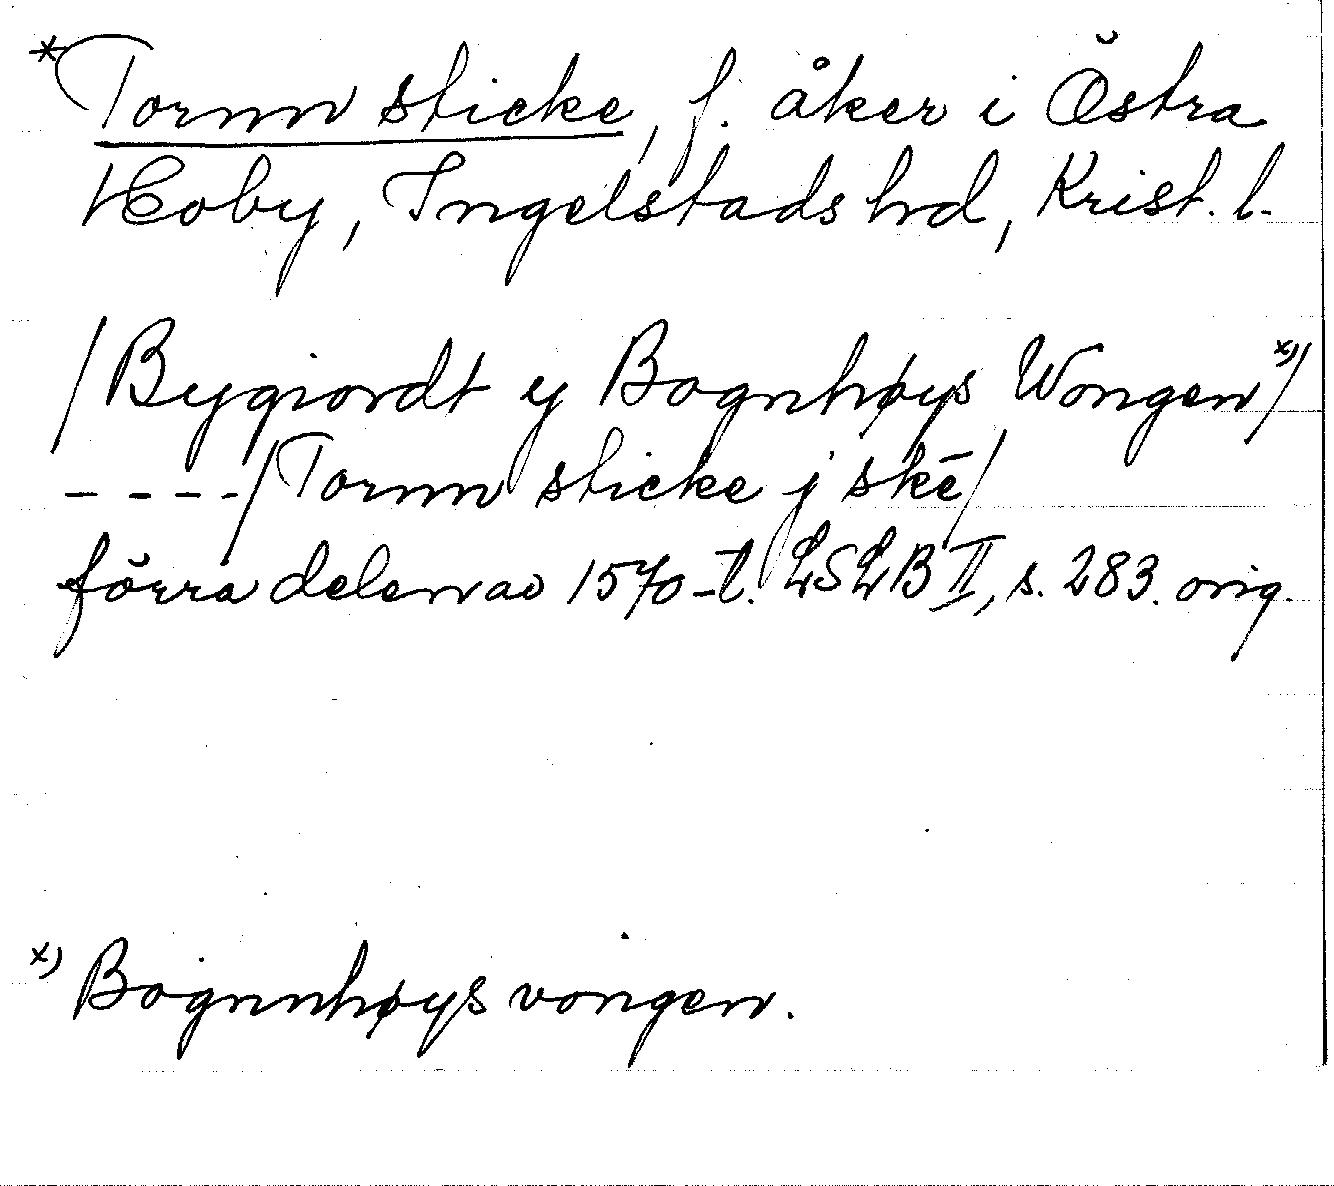 *Tornn sticke, f. åker i Östra
Hoby, Ingelstads hrd, Krist. l.
/Bygiordt y Bognhøys Wongen x)/
----/Tornn sticke j skē/
förra delen av 1570-t. LSLB II, s. 283. orig.
x) Bognnhøys vongen.